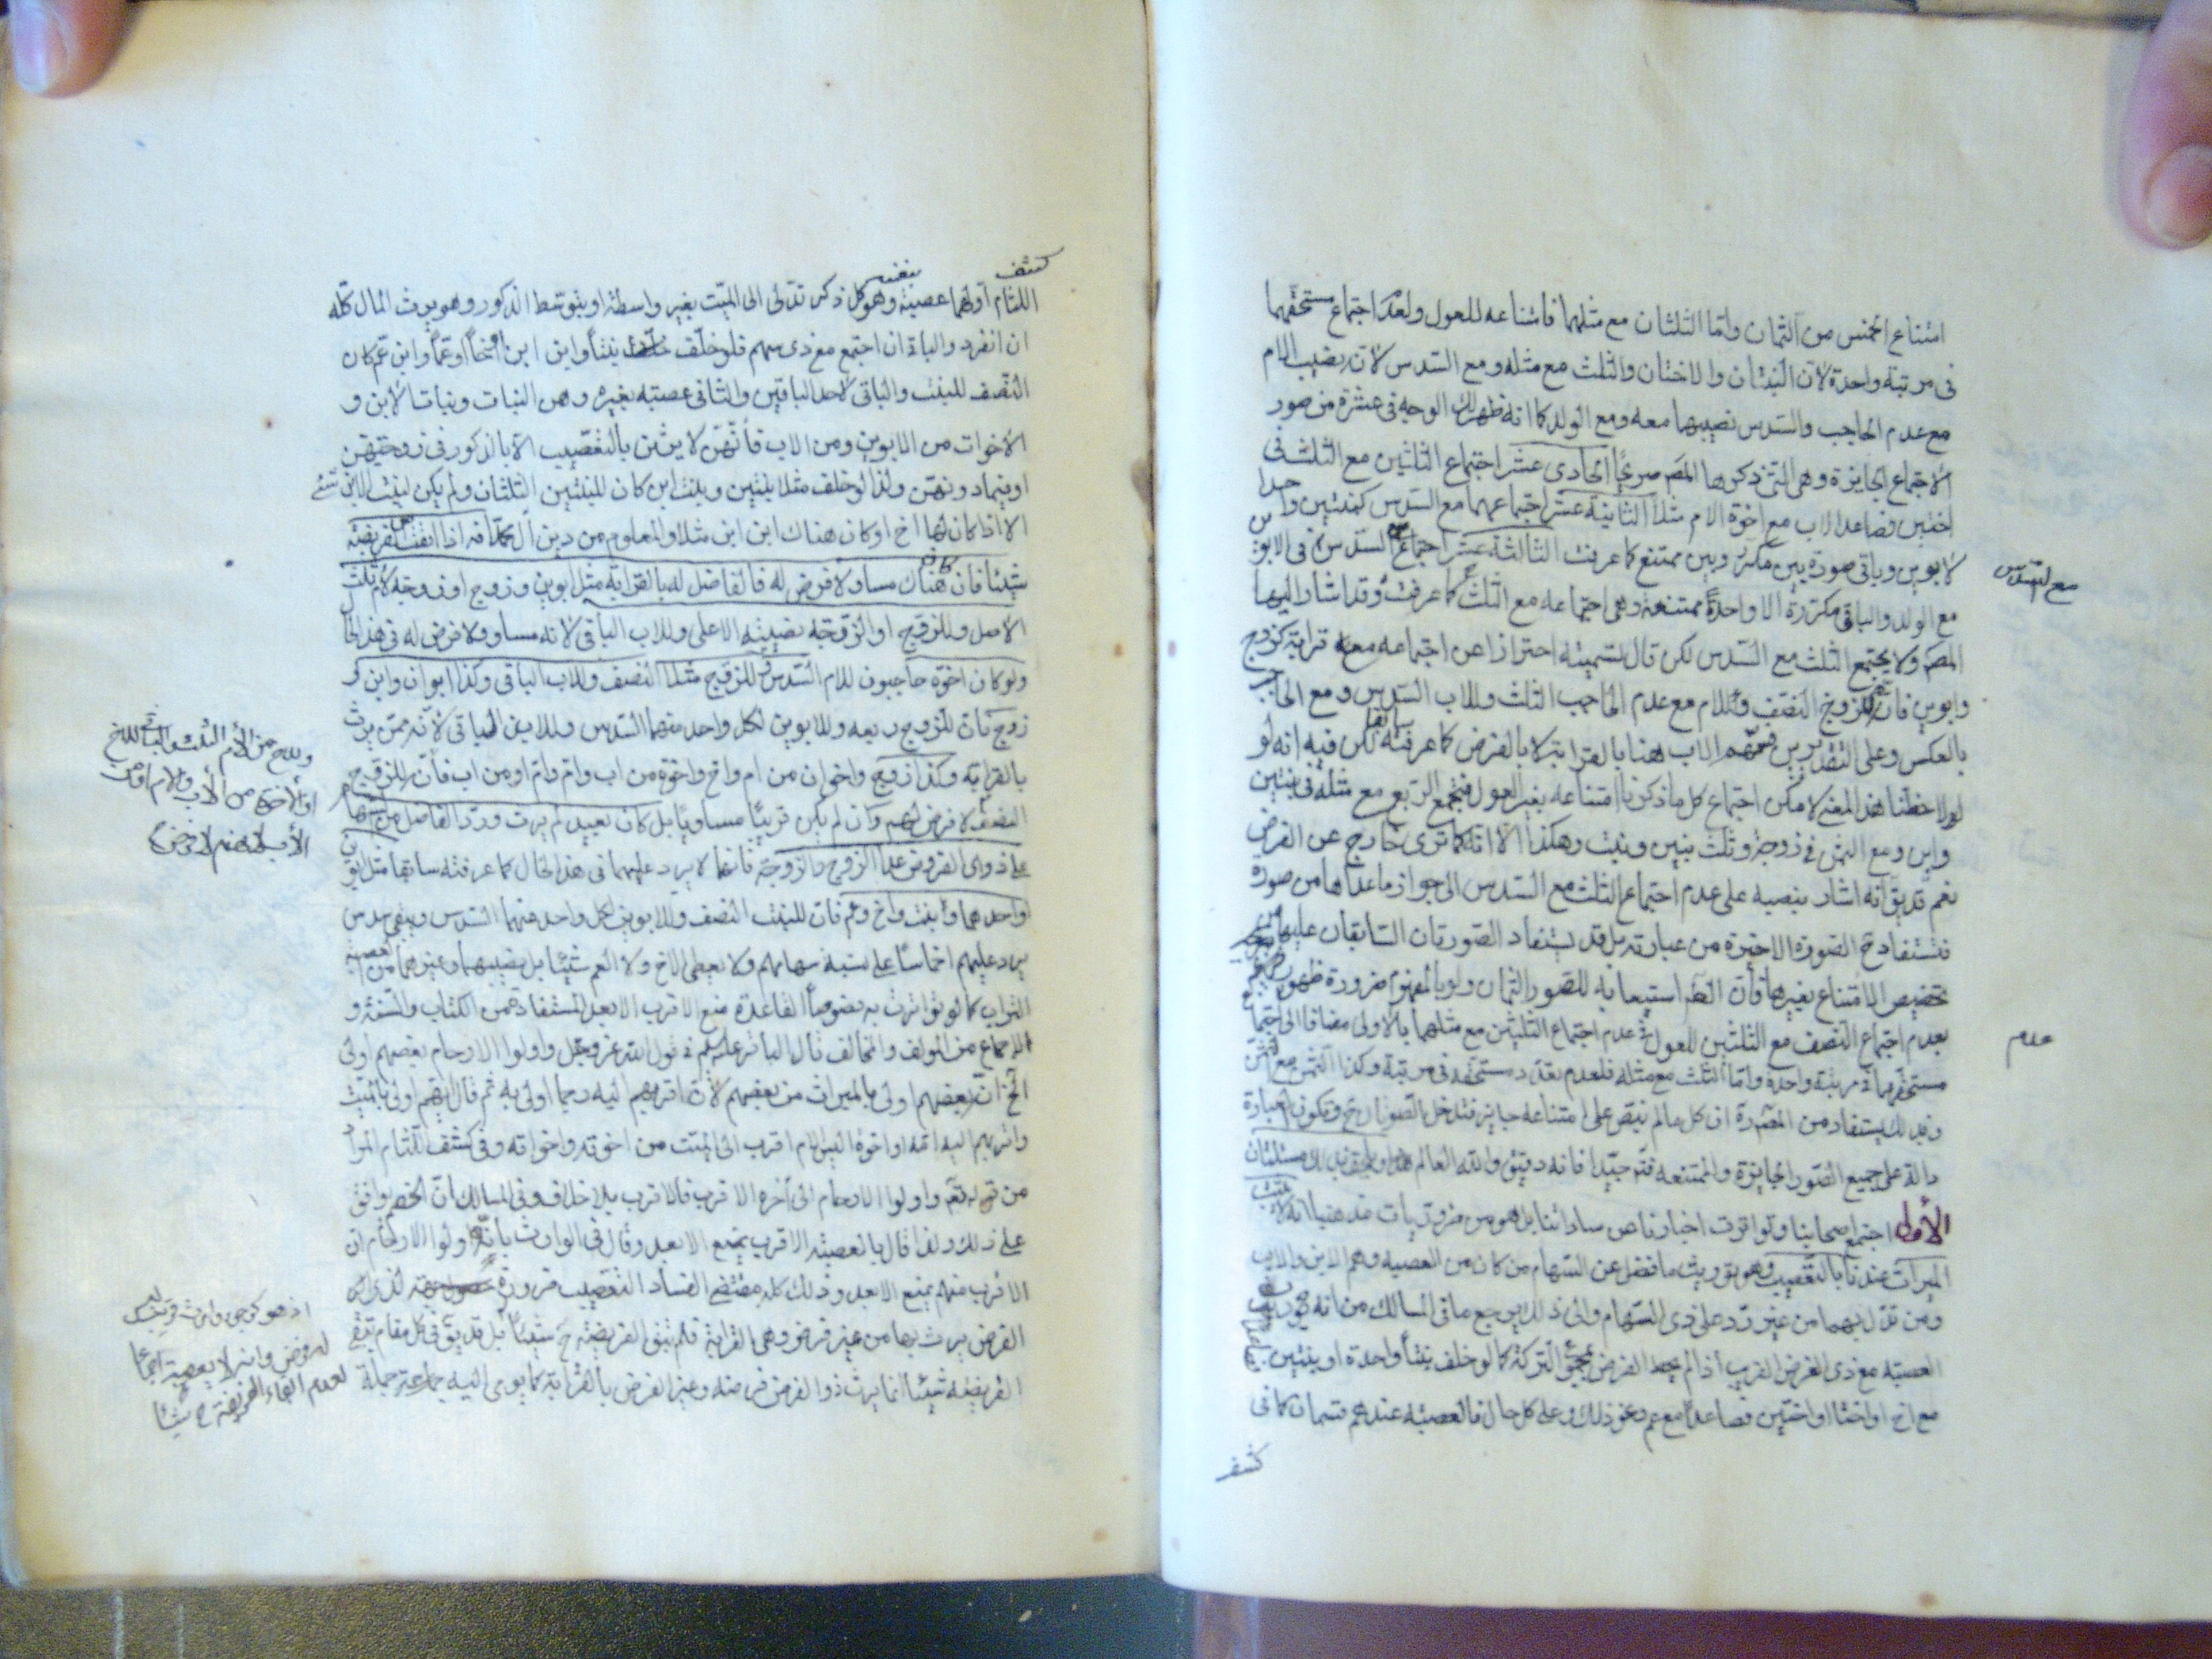 امتناع الخمس من الثمان واما الثلثان مع مثلهما فامتناعه للعول ولعدم اجتماع مستحقهما
فى مرتبة واحدة لان البنتان والاختان والثلث مع مثله ومع السدس لانه نصيب الام
مع عدم الحاجب والسدس نصيبها معه ومع الولد كما انه ظهر لك الوجه فى عشرة من صور
الاجتماع الجايزة وهى التى ذكرها المصَ صريحًا الحادى عشر اجتماع الثلثين مع الثلث فى
اختين فصاعدا لاب مع اخوة الام مثلا الثانية عشر اجتماعهما مع السدس كبنتين واحد
لابوين وباقى صوره بين مكرر وبين ممتنع كما عرفت الثالثة عشر اجتماع السدس فى الابوين
مع السدس
مع الولد والباقى مكررة الا واحدة ممتنعة وهى اجتماعه مع الثلث كما عرفت وقد اشار اليها
المصَ ولا يجتمع الثلث مع السدس لكن قال تسمية احترازا عن اجتماعه معه قرابة كزوج
وابوين فان للزوج النصف وللام مع عدم الحاجب الثلث وللاب السدس ومع الحاجب
بالعكس وعلى التقديرين الاب هنا بالقرابة لا بالفرض كما عرفته لكن فيه انه لو
لاحظنا هذا المعنى لامكن اجتماع كل ما ذكرنا امتناعه بغير العول فيجتمع الربع مع مثله فى بنتين
وابن ومع الثمن فى زوجة وثلث بنين وبنت وهكذا الا انه كما ترى خارج عن الفرض
نعم قد يقَ انه اشار بنصيه على عدم اجتماع الثلث مع السدس الى جواز ما عداها من صورة
فتستفاد ح الصورة الاخيرة من عبارته بل قد يستفاد الصورتان السابقان عليها من
تخصيص الامتناع بغيرها فأن الظَ استيعابه للصور الثمان ولو بالمفهوم ضرورة ظهور
بعدم اجتماع النصف مع الثلثين للعول فى عدم اجتماع الثلثين مع مثلهما بالاولى مضافا الى اجتماع
عدم
مستحقهما فى مرتبة واحدة واما الثلث مع مثله فلعدم تعدد مستحقه فى مرتبة وكذا الثمن مع الثمن
وبذلك يستفاد من المصَ ان كل ما لم ينص على امتناعه جايز فتدخل الصور ح وتكون العبارة
دالة على جميع الصور الجايزة والممتنعه فتدَ جيدا فانه دقيق والله العالم مسئلتان
الأولى اجتمع اصحابنا وتواترت اخبارنا عن ساداتنا بل هو من ضروريات مذهبنا انه لا يثبت
الميراث عندنا بالتعصيب وهو توريث ما فضل عن السهام من كان من العصبه وهم الابن والاب
ومن تدلى بهما من غير رد على ذى السهام والى ذلك يرجع ما فى المسالك من انه توريث
العصبة مع ذى الفرض القريب اذا لم يحط الفرض بمجموع التركة كما لو خلف بنتا واحدة او بنتين
مع اخ او اختا او اختين فصاعدا مع عم ونحو ذلك وعلى كل حال فالعصبة عندهم قسمان كما فى
كشف
كشف
اللثام اولهما عصبة بنفسه وهو كل ذكر تدلى الى الميت بغير واسطة او بتوسط الذكور وهو يرث المال كله
ان انفرد والباقى ان اجتمع مع ذى سهم فلو خلف بنتا وابن ابن او اخا او عما وابن عم كان
النصف للبنت والباقى لاحد الباقين والثانى عصبته بغيره وهن البنات وبنات الابن و
الاخوات من الابوين ومن الاب فأنهن لا يرثن بالتعصيب الا بالذكور فى درجتهن
او فيما دونهن ولذا لو خلف مثلا بنتين وبنت ابن كان للبنتين الثلثان ولم يكن لبنت الابن شئ
الا اذا كان لها اخ او كان هناك ابن ابن مثلا والمعلوم من دين آل محمد انه اذا ابقت الفريضة
شيئا فان كان هناك مساو لا فرض له فالفاضل له بالقرابة مثل ابوين وزوج او زوجة للام ثلث
الاصل وللزوج او الزوجة نصيبه الاعلى وللاب الباقى لانه مساو ولا فرض له فى هذا الحال
ولو كان اخوة حاجبون للام السدس وللزوج مثلا النصف وللاب الباقى وكذا ابوان وابن و
زوج فان للزوج ربعه وللابوين لكل واحد منهما السدس وللابن الباقى لانه ممن يرث
بالقرابة وكذا زوج واخوان من ام واخ واخوة من اب وام او من اب فان للزوج
وللاخ من الام الثلث والباقى للاخ
او الاخوة من الاب والام او من
الاب لانهم لا فرض
النصف لا فرض لهم وان لم يكن قريبا مساويا بل كان بعيد لم يرث ورد الفاضل من السهام
على ذوى الفروض عدا الزوج والزوجة فانهما لا يرد عليهما فى هذا الحال كما عرفته سابقا مثل ابوين
واحدهما وبنت واخ وعم فان للبنت النصف وللابوين لكل واحد منهما السدس ويبقى سدس
يرد عليهم اخماسا على نسبة سهامهم ولا يعطى الاخ ولا العم شيئا بل نصيبهما وغيرهما من العصبه
التراب كما تواترت به نصوصا القاعدة منع الاقرب الابعد المستفادة من الكتاب والسنة و
الاجماع من المولف والمخالف قال الباقر عليه السلم فى قول الله عز وجل واولوا الارحام بعضهم اولى
الخ ان بعضهم اولى بالميراث من بعضهم لان اقربهم اليه رحما اولى به ثم قال ايهم اولى بالميت
واقربهم اليه امه او اخوه اليس الام اقرب الى الميت من اخوته واخواته وفى كشف اللثام المراد
من قوله تعَ واولوا الارحام الى آخره الاقرب فالاقرب بلا خلاف وفى المسالك ان الخصم وافق
على ذلك ولذا قال بالعصبة الاقرب يمنع الابعد وقال فى الوارث بأنه اولوا الارحام ان
الاقرب منهم يمنع الابعد وذلك كله مقتض الفساد التعصيب ضرورة
اذ هو كزوج وارث وتخلل
الفرض يرث بها من غير فرض وهى القرابة فلم تبق الفريضة ح شيئا بل قد يقَ فى كل مقام تبقى
لفروض وانه لا بعصبة اجماعا
الفريضة شيئا انما يرث ذو الفرض فرضه وغير الفرض بالقرابة كما يومى اليه جماعة جملة
لعدم ابقاء الفريضة ح شيئا